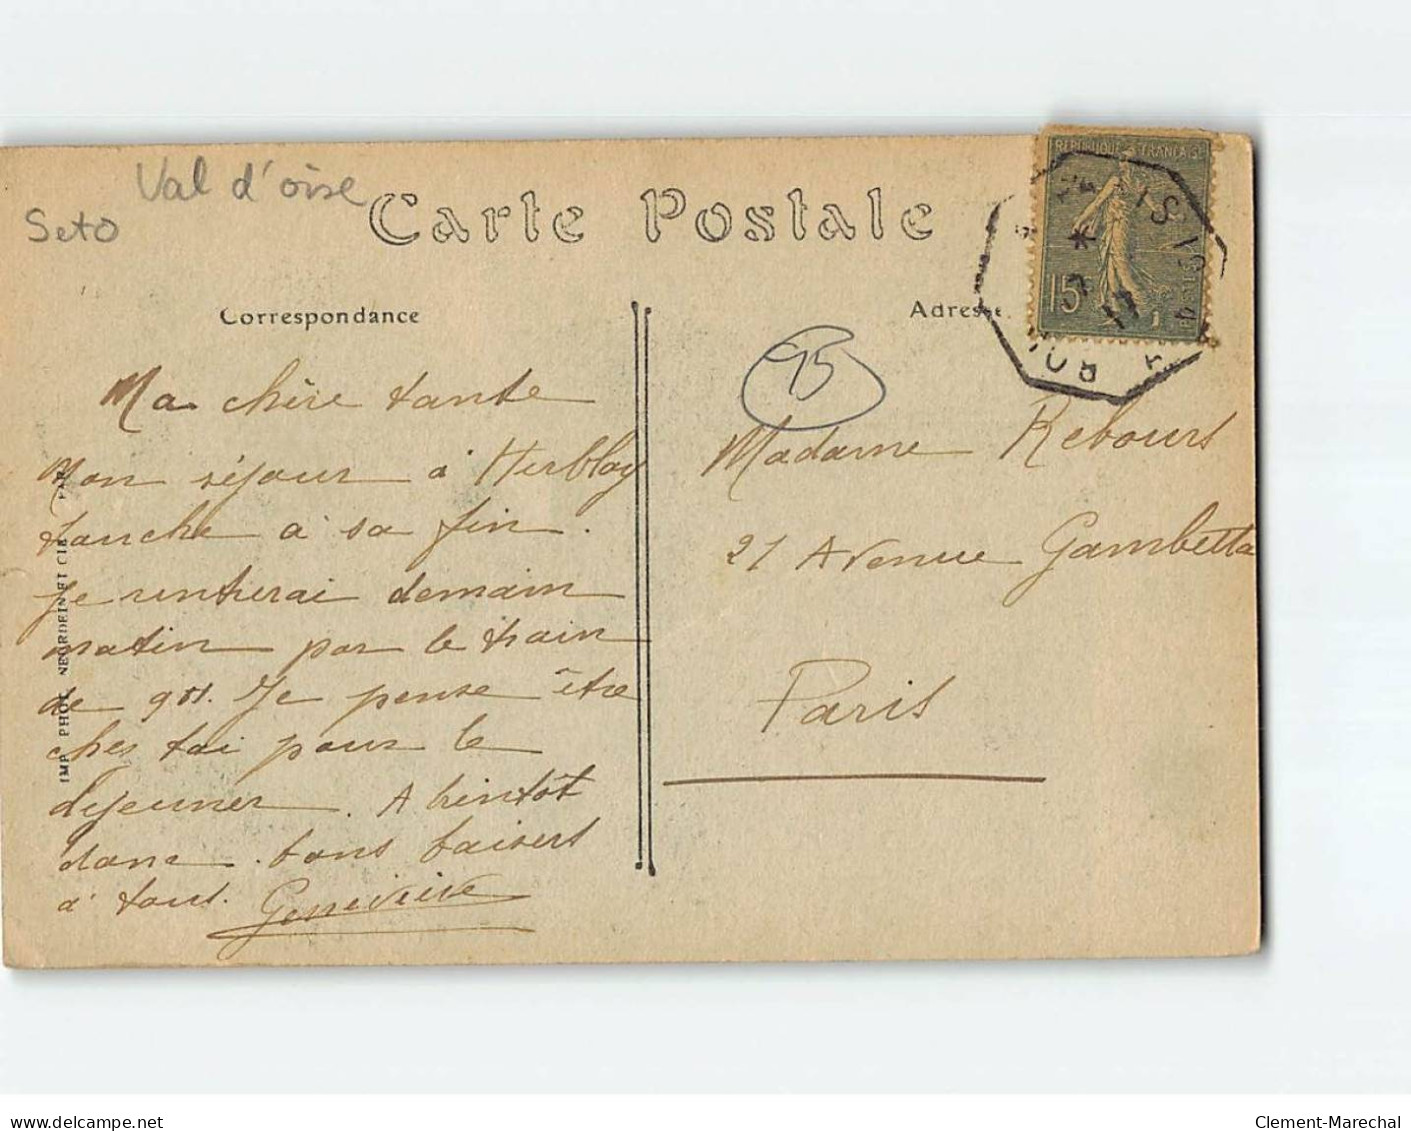 Val d'oise
Seto
Carte Postale
RÉPUBLIQUE FRANÇAISE
15
Correspondance
Adresse
95
Ma chère tante
Mon séjour à Herblay
touche à sa fin.
Je rentrerai demain
matin par le train
de 9h. Je pense être
chez toi pour le
déjeuner. A bientôt
donc bons baisers
à tous. Geneviève
Madame Rebours
21 Avenue Gambetta
Paris
IMP. PHOT. NEURDEIN ET CIE PAR
delcampe.net
Clement-Marechal